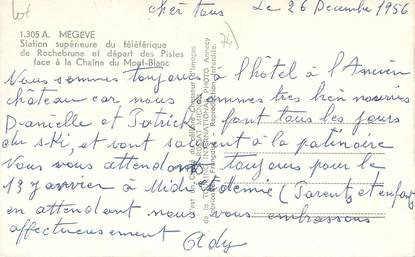 lot
cher tous
Le 26 Decembre 1956
1.305 A. MEGEVE
Station supérieure du téléférique
de Rochebrune et départ des Pistes
face à la Chaîne du Mont-Blanc
74
Nous sommes toujours à l'hôtel à l'Ancien
château car nous sommes tres bien nourris
Danielle et Patrick font tous les jours
du ski, et vont souvent à la patinoire
Nous vous attendons toujours pour le
13 janvier à Midi (Parents et enfants)
en attendant nous vous embrassons
affectueusement Ady
de la THEOJAC INTERNATIONAL PHOTO Annecy
Fabrication Française Reproduction interdite.